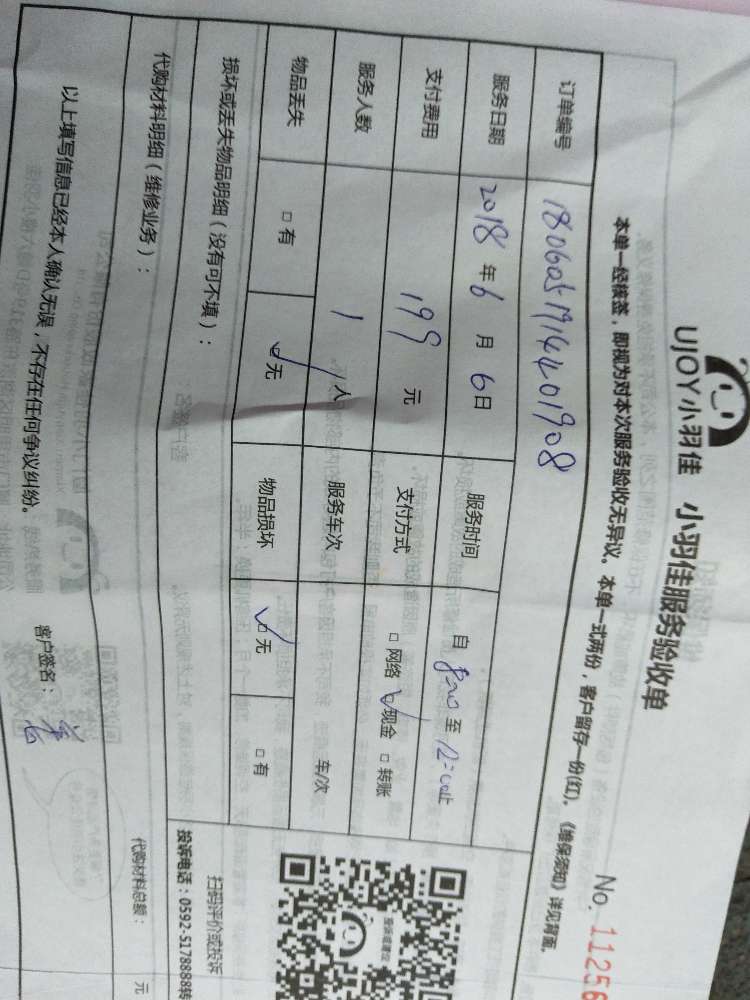 UJOY小羽佳 小羽佳服务验收单
No. 11256
本单一经核签，即视为对本次服务验收无异议。本单一式两份，客户留存一份(红)。《维保须知》详见背面。
订单编号 18060519144201908
服务日期 2018 年 6 月 6 日 服务时间 自 8:00 至 12:00止
支付费用 199 元 支付方式 □ 网络 ☑ 现金 □ 转账
服务人数 1 人 服务车次 车/次
物品丢失 □ 有 ☑ 无 物品损坏 ☑ 无 □ 有
损坏或丢失物品明细（没有可不填）：
扫码评价或投诉
投诉电话：0592-5178888转
代购材料明细（维修业务）： 代购材料总额： 元
以上填写信息已经本人确认无误，不存在任何争议纠纷。 客户签名：